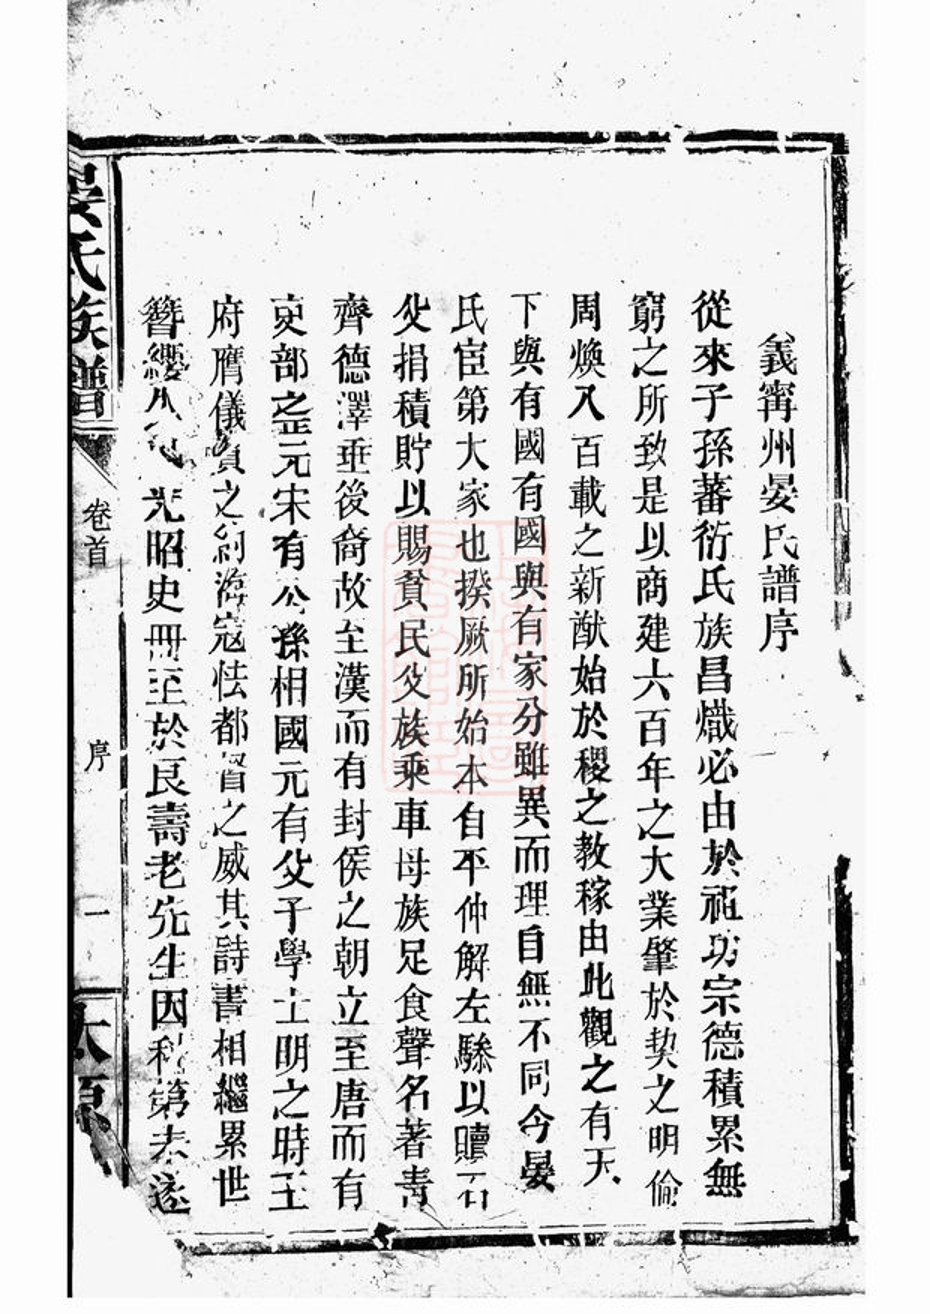 義寧州晏氏譜序
從來子孫蕃衍氏族昌熾必由於祖功宗德積累無
窮之所致是以商建六百年之大業肇於契之明倫
周煥八百載之新猷始於稷之教稼由此觀之有天
下與有國有國與有家分雖異而理自無不同今晏
氏宦第大家也揆厥所始本自平仲解左驂以贖石
父捐積貯以賜貧民父族乘車母族足食聲名著靑
齊德澤垂後裔故至漢而有封侯之朝立至唐而有
吏部之正元宋有公孫相國元有父子學士明之時王
府膺儀賓之海寇怯都督之威其詩書相繼累世
簪纓光昭史冊至於良壽老先生因第未遂
晏氏族譜
卷首
序
一
太原